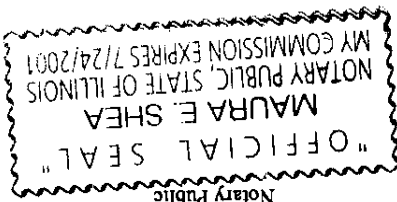 Notary Public
"OFFICIAL SEAL"
MAURA E. SHEA
NOTARY PUBLIC, STATE OF ILLINOIS
MY COMMISSION EXPIRES 7/24/2001